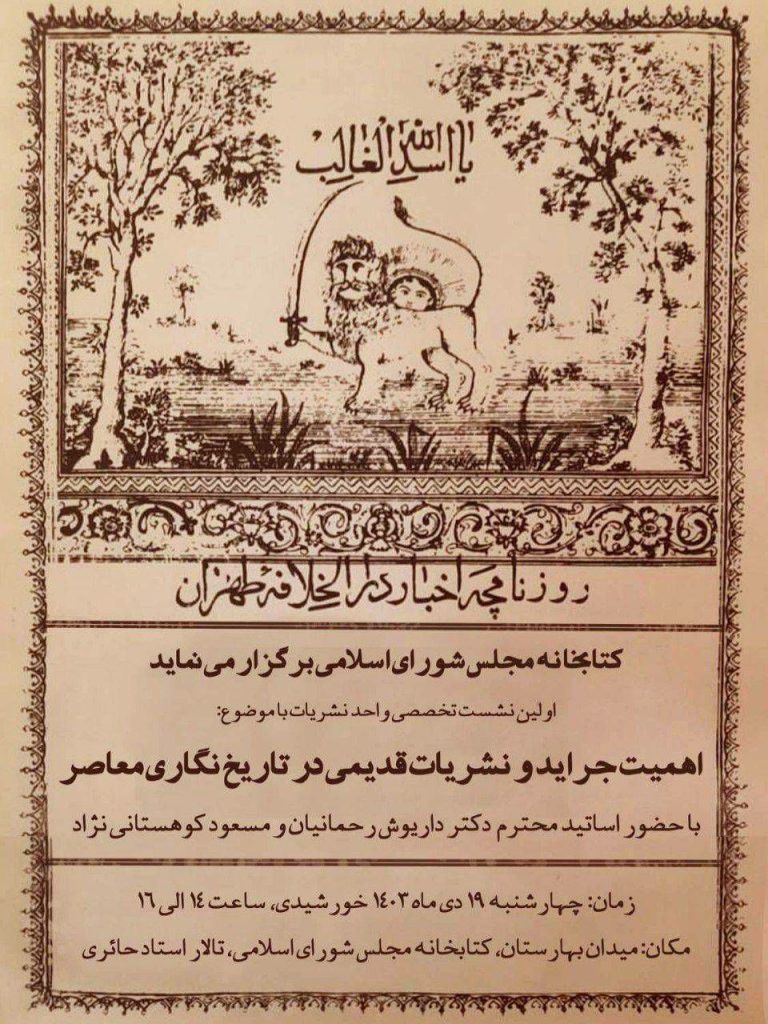 یا اسد الله الغالب
روزنامچه اخبار دارالخلافهٔ طهران
کتابخانه مجلس شورای اسلامی برگزار می‌نماید
اولین نشست تخصصی واحد نشریات با موضوع:
اهمیت جراید و نشریات قدیمی در تاریخ نگاری معاصر
با حضور اساتید محترم دکتر داریوش رحمانیان و مسعود کوهستانی نژاد
زمان: چهارشنبه ۱۹ دی ماه ۱۴۰۳ خورشیدی، ساعت ۱۴ الی ۱۶
مکان: میدان بهارستان، کتابخانه مجلس شورای اسلامی، تالار استاد حائری